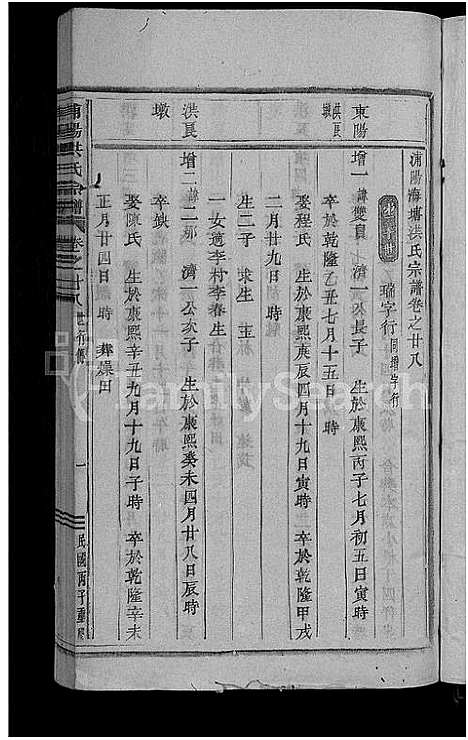 浦陽海塘洪氏宗譜卷之廿八
瑞字行 同增字行
東陽 洪良墩
增一 諱雙貞 濟一公長子 生於康熙丙子七月初五日寅時
卒於乾隆乙丑七月十五日 時
娶程氏 生於康熙庚辰四月十九日寅時 卒於乾隆甲戌
二月廿九日 時
生二子 求生 玉
一女適李村李春生
洪良墩
增二 諱二郎 濟一公次子 生於康熙癸未四月廿八日辰時
卒缺
娶陳氏 生於康熙辛丑九月十九日子時 卒於乾隆辛未
正月廿四日 時 葬 田
浦陽洪氏宗譜 卷之廿八 世行傳 一 民國丙子重修
FamilySearch